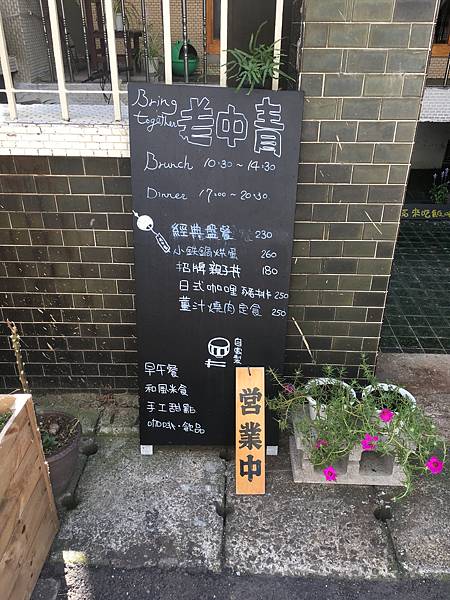 Bring together 老中青
Brunch 10:30～14:30
Dinner 17:00～20:30
經典盤餐 230
小鐵鍋烘蛋 260
招牌親子丼 180
日式咖哩豬排 250
薑汁燒肉定食 250
自家製
早午餐
和風米食
手工甜點
咖啡・飲品
營業中
來吃飯